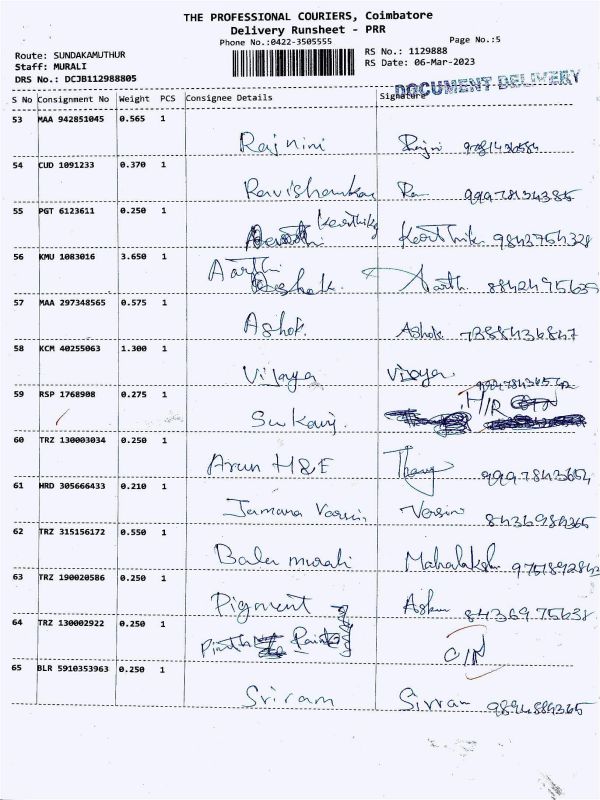 THE PROFESSIONAL COURIERS, Coimbatore
Delivery Runsheet - PRR
Phone No.:0422-3505555
Page No.:5
Route: SUNDAKAMUTHUR
Staff: MURALI
DRS No.: DCJB112988805
RS No.: 1129888
RS Date: 06-Mar-2023
DOCUMENT DELIVERY
S No Consignment No Weight PCS Consignee Details Signature
53 MAA 942851045 0.565 1
Rajnini Rajni
54 CUD 1091233 0.370 1
Ravishankar Ra
55 PGT 6123611 0.250 1
Keerthika
Keerthika 9843754328
56 KMU 1083016 3.650 1
Aarthi
Aarth. 8842495635
57 MAA 297348565 0.575 1
Ashok. Ashok 7388436847
58 KCM 40255063 1.300 1
Vijaya Vijaya
59 RSP 1768908 0.275 1
H/R
60 TRZ 130003034 0.250 1
Arun H&E 9997843654
61 HRD 305666433 0.210 1
Jamana Versini 8436984365
62 TRZ 315156172 0.550 1
Bala murali Mahalaksh
63 TRZ 190020586 0.250 1
Pigment 8436975638
64 TRZ 130002922 0.250 1
65 BLR 5910353963 0.250 1
Sriram 9894884365